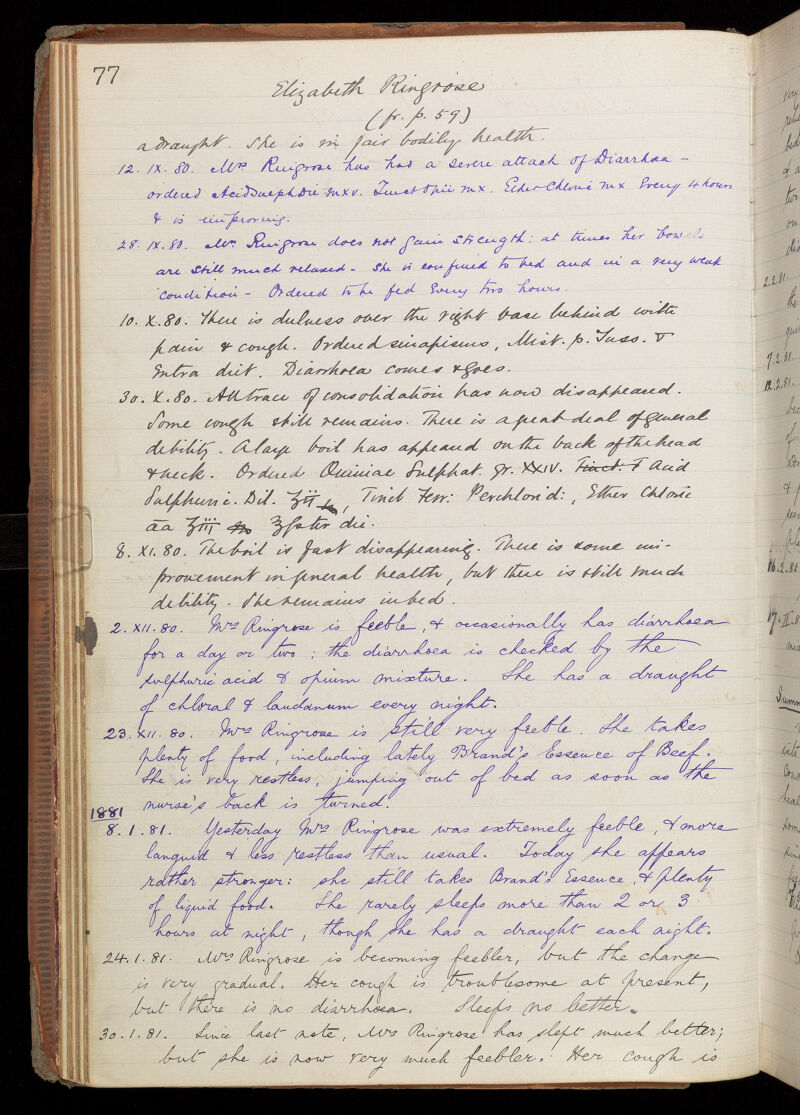 77
Elizabeth Ringrose
(fr. p. 59)
a draught. She is in fair bodily health.
12. IX. 80. Mrs. Ringrose has had a severe attack of Diarrhœa -
ordered Acid Sulph Dil m xv. Tinct Opii m x. Ether Chloric m x Every 4 hours
& is improving.
28. IX. 80. Mrs. Ringrose does not gain strength: at times her bowels
are still much relaxed - She is confined to bed and in a very weak
condition - Ordered to be fed Every two hours.
10. X. 80. There is dulness over the right base behind with
pain & cough. Ordered sinapisms, Mist. p. Tuss. &
Extra diet. Diarrhoea comes & goes.
30. X. 80. All trace of consolidation has now disappeared.
Some cough still remains. There is a great deal of general
debility. A large boil has appeared on the back of the head
& neck. Ordered Quiniae Sulphat. gr. XXIV. Tinct. Acid
Sulphuric. Dil. ʒii, Tinct Ferr: Perchlorid:, Ether Chloric
āa ʒiii ter die.
8. XI. 80. The boil is fast disappearing. There is some im-
provement in general health, but there is still much
debility. She remains in bed.
2. XII. 80. Mrs Ringrose is feeble, & occasionally has diarrhœa
for a day or two; the diarrhœa is checked by the
sulphuric acid & opium mixture. She has a draught
of chloral & laudanum every night.
23. XII. 80. Mrs Ringrose is still very feeble. She takes
plenty of food, including lately Brand's Essence of Beef.
She is very restless, jumping out of bed as soon as the
nurse's back is turned.
1881
8. 1. 81. Yesterday Mrs Ringrose was extremely feeble, & more
languid & less restless than usual. Today she appears
rather stronger: she still takes Brand's Essence, & plenty
of liquid food. She rarely sleeps more than 2 or 3
hours at night, though she has a draught each night.
24. 1. 81. Mrs Ringrose is becoming feebler, but the change
is very gradual. Her cough is troublesome at present,
but there is no diarrhœa. Sleeps no better.
30. 1. 81. Since last note, Mrs Ringrose has slept much better;
but she is now very much feebler. Her cough is
2.2.81.
7.2.81.
12.2.81.
16.2.81